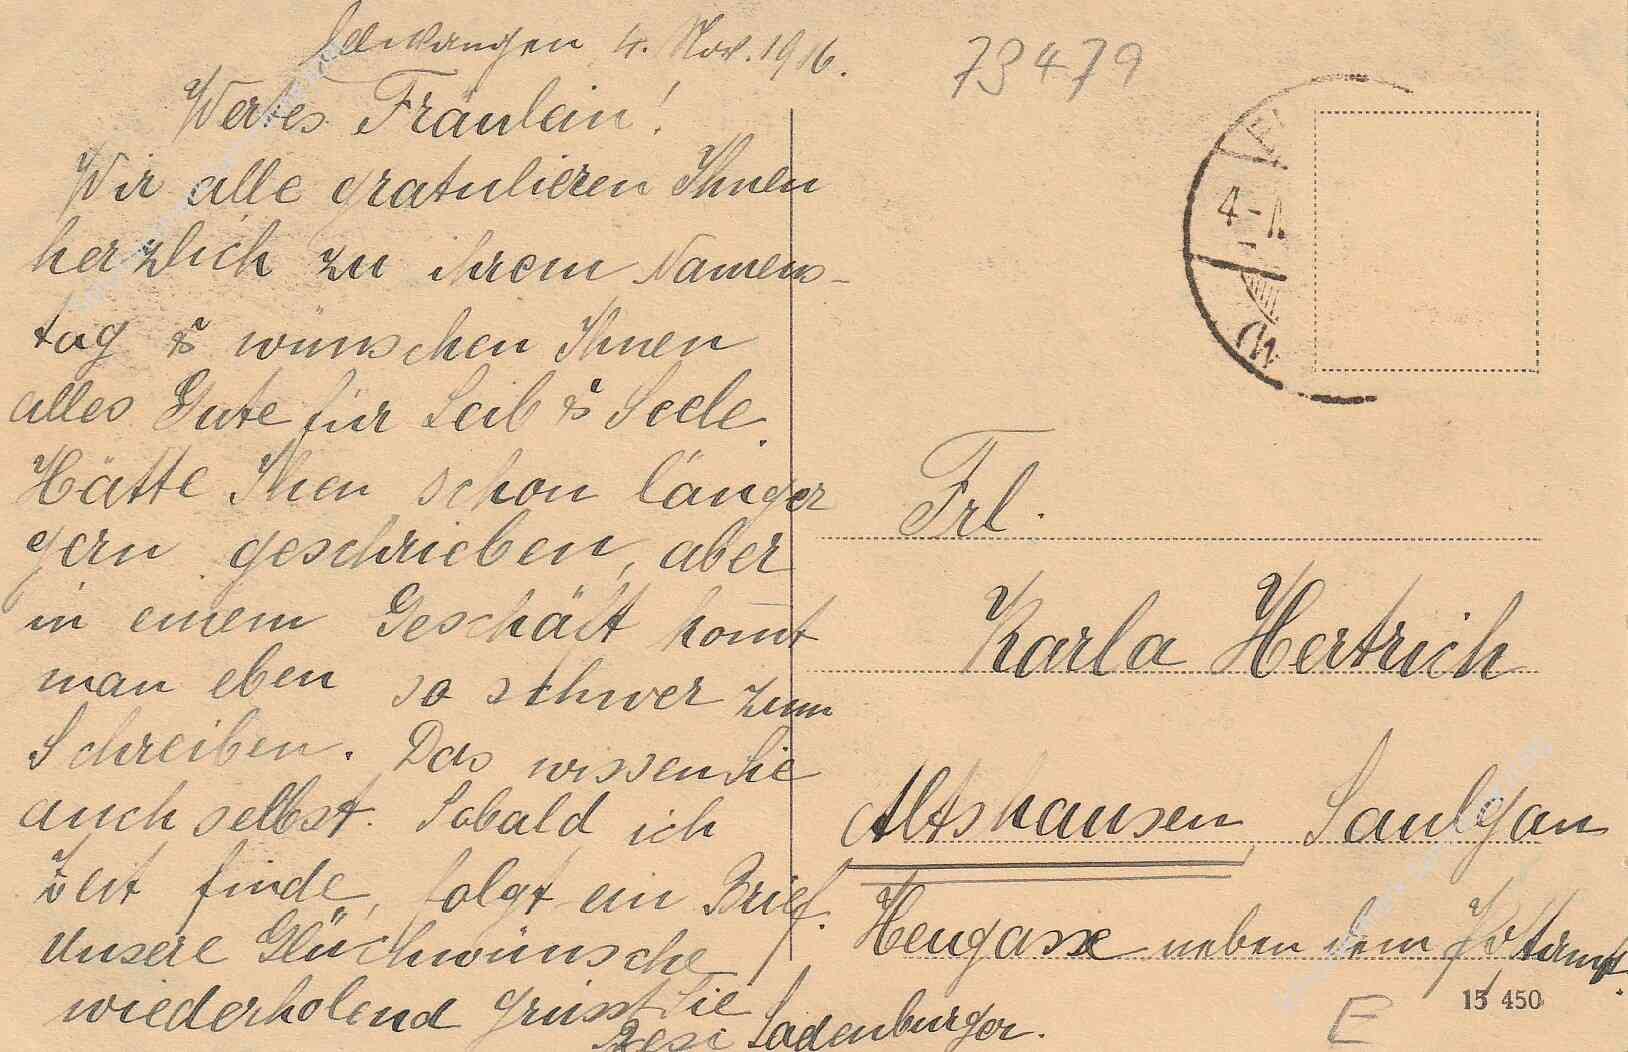 Ellwangen 4. Nov. 1916.
Wertes Fräulein!
Wir alle gratulieren Ihnen
herzlich zu ihrem Namens-
tag & wünschen Ihnen
alles Gute für Leib & Seele.
Hätte Ihen schon länger
gern geschrieben, aber
in einem Geschäft kom̅t
man eben so schwer zum
Schreiben. Das wissen Sie
auch selbst. Sobald ich
Zeit finde, folgt ein Brief.
Unsere Glückwünsche
wiederholend grüsst Sie
Resi Ladenburger.
73479
4-N
Frl.
Karla Hertrich
Altshausen Saulgau
Heugasse neben dem Postamt.
E
15 450